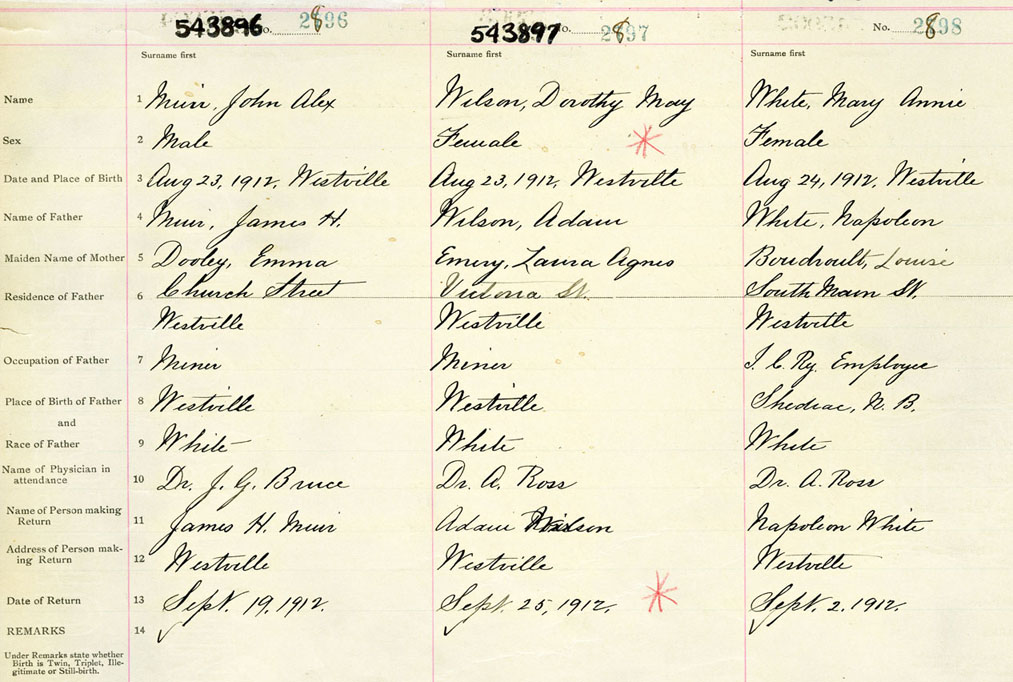 543896 No. 2896 543897 No. 2897 No. 2898
Surname first Surname first Surname first
Name 1 Muir, John Alex Wilson, Dorothy May White, Mary Annie
Sex 2 Male Female Female
Date and Place of Birth 3 Aug 23, 1912, Westville Aug 23, 1912, Westville Aug 24, 1912, Westville
Name of Father 4 Muir, James H. Wilson, Adam White, Napoleon
Maiden Name of Mother 5 Dooley, Emma Emery, Laura Agnes Boudroult, Louise
Residence of Father 6 Church Street Victoria St. South Main St.
Westville Westville Westville
Occupation of Father 7 Miner Miner I. C. Ry. Employee
Place of Birth of Father 8 Westville Westville Shediac, N. B.
and
Race of Father 9 White White White
Name of Physician in
attendance 10 Dr. J. G. Bruce Dr. A. Ross Dr. A. Ross
Name of Person making
Return 11 James H. Muir Adam Wilson Napoleon White
Address of Person mak-
ing Return 12 Westville Westville Westville
Date of Return 13 Sept. 19, 1912. Sept. 25, 1912. Sept. 2, 1912.
REMARKS 14
Under Remarks state whether
Birth is Twin, Triplet, Ille-
gitimate or Still-birth.